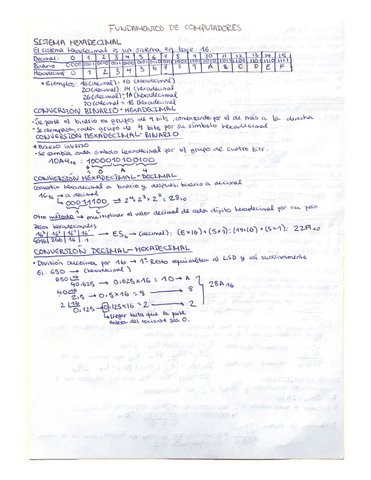 FUNDAMENTOS DE COMPUTADORES
SISTEMA HEXADECIMAL
El sistema hexadecimal es un sistema en base 16.
Decimal: 0 1 2 3 4 5 6 7 8 9 10 11 12 13 14 15
Binario
Hexadecimal 0 1 2 3 4 5 6 7 8 9 A B C D E F
• Ejemplos: 16 (decimal) = 10 (hexadecimal)
20 (decimal) = 14 (hexadecimal)
26 (decimal) = 1A (hexadecimal)
30 (decimal) = 1E (hexadecimal)
CONVERSIÓN BINARIO - HEXADECIMAL
- Se parte el binario en grupos de 4 bits, comenzando por el de más a la derecha
- Se reemplaza cada grupo de 4 bits por su símbolo hexadecimal
CONVERSIÓN HEXADECIMAL - BINARIO
• Proceso inverso
- Se cambia cada símbolo hexadecimal por el grupo de cuatro bits.
10A4₁₆ : 1000010100100
1 0 A 4
CONVERSIÓN HEXADECIMAL - DECIMAL
Convertir hexadecimal a binario y después binario a decimal
1C₁₆ → a decimal
→ 00011100 → 2⁴+2³+2² = 28₁₀
1 C
Otro método → multiplicar el valor decimal de cada dígito hexadecimal por su peso.
Pesos hexadecimales
16³ 16² 16¹ 16⁰ → E5₁₆ → (decimal): (E×16)+(5×1) = (14×16)+(5×1) = 229₁₀
4096 256 16 1
CONVERSIÓN DECIMAL - HEXADECIMAL
• División sucesiva por 16 → 1º Resto equivaldría al LSD y así sucesivamente
Ej: 650 → (hexadecimal)
650 16
40.625 → 0.625×16 = 10 → A
40 16
2.5 → 0.5×16 = 8 8 28A₁₆
2 16
0.125 → 0.125×16 = 2 2
→ Llegar hasta que la parte
entera del cociente sea 0.